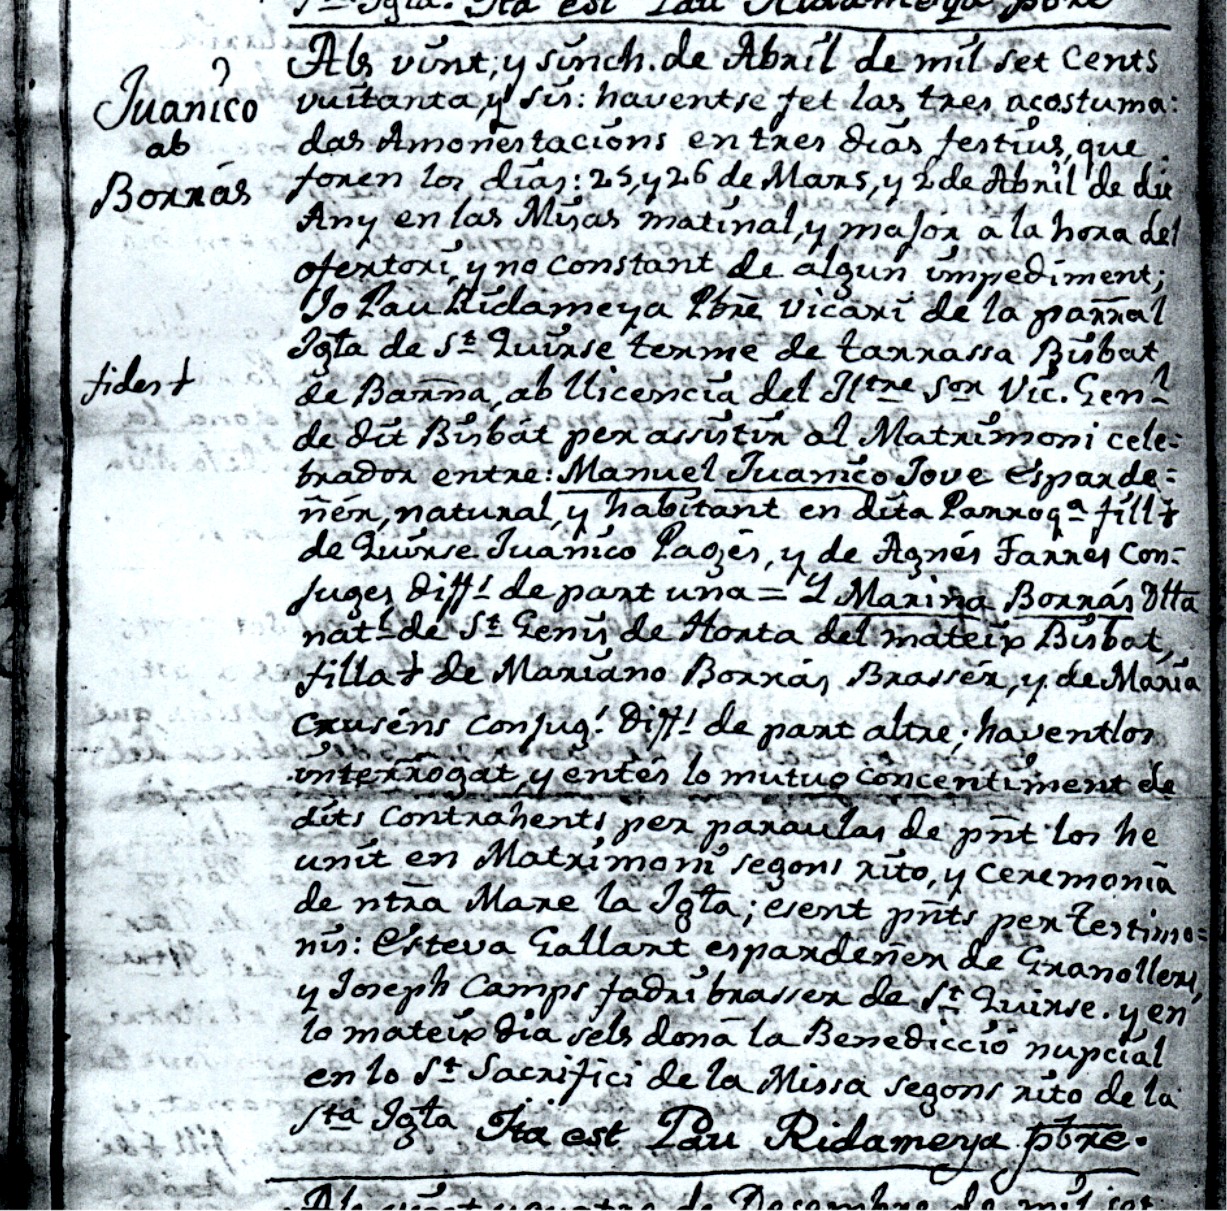 Sta Igla. Ita est Pau Ridameya pbre
Juanico
ab
Borrás
fides †
Als vint, y sinch. de Abril de mil set cents
vuitanta, y sis: haventse fet las tres acostuma:
das Amonestacions en tres dias festius, que
foren los dias: 25, y 26 de Mars, y 2 de Abril de dit
Any en las Misas matinal, y major a la hora del
ofertori, y no constant de algun impediment;
Jo Pau Ridameya Pbre vicari de la parral
Igla de St Quirse terme de tarrassa Bisbat
de Barna, ab llicencia del Iltre Sor Vic. Genl
de dit Bisbat per assistir al Matrimoni cele:
brador entre: Manuel Juanico Jove esparde:
ñér, natural, y habitant en dita Parroqa fill †
de Quirse Juanico Pagés, y de Agnés Farrés Con:
juges diffs de part una = Y Marina Borrás Dtta
natl de St Genis de Horta del mateix Bisbat,
filla † de Mariano Borrás Brassér, y de Maria
Cruséns conjugs diffs de part altre; haventlos
interrogat, y entés lo mutuo concentiment de
dits Contrahents per paraulas de pñt los he
unit en Matrimoni segons rito, y ceremonia
de ntra Mare la Igla; esent pñts per testimo:
nis: Esteva Gallart espardeñer de Granollers,
y Joseph Camps fadri brasser de St Quirse. y en
lo mateix dia sels doná la Benedicció nupcial
en lo St Sacrifici de la Missa segons rito de la
Sta Igla Ita est Pau Ridameya pbre.
Als vint y quatre de Desembre de mil set